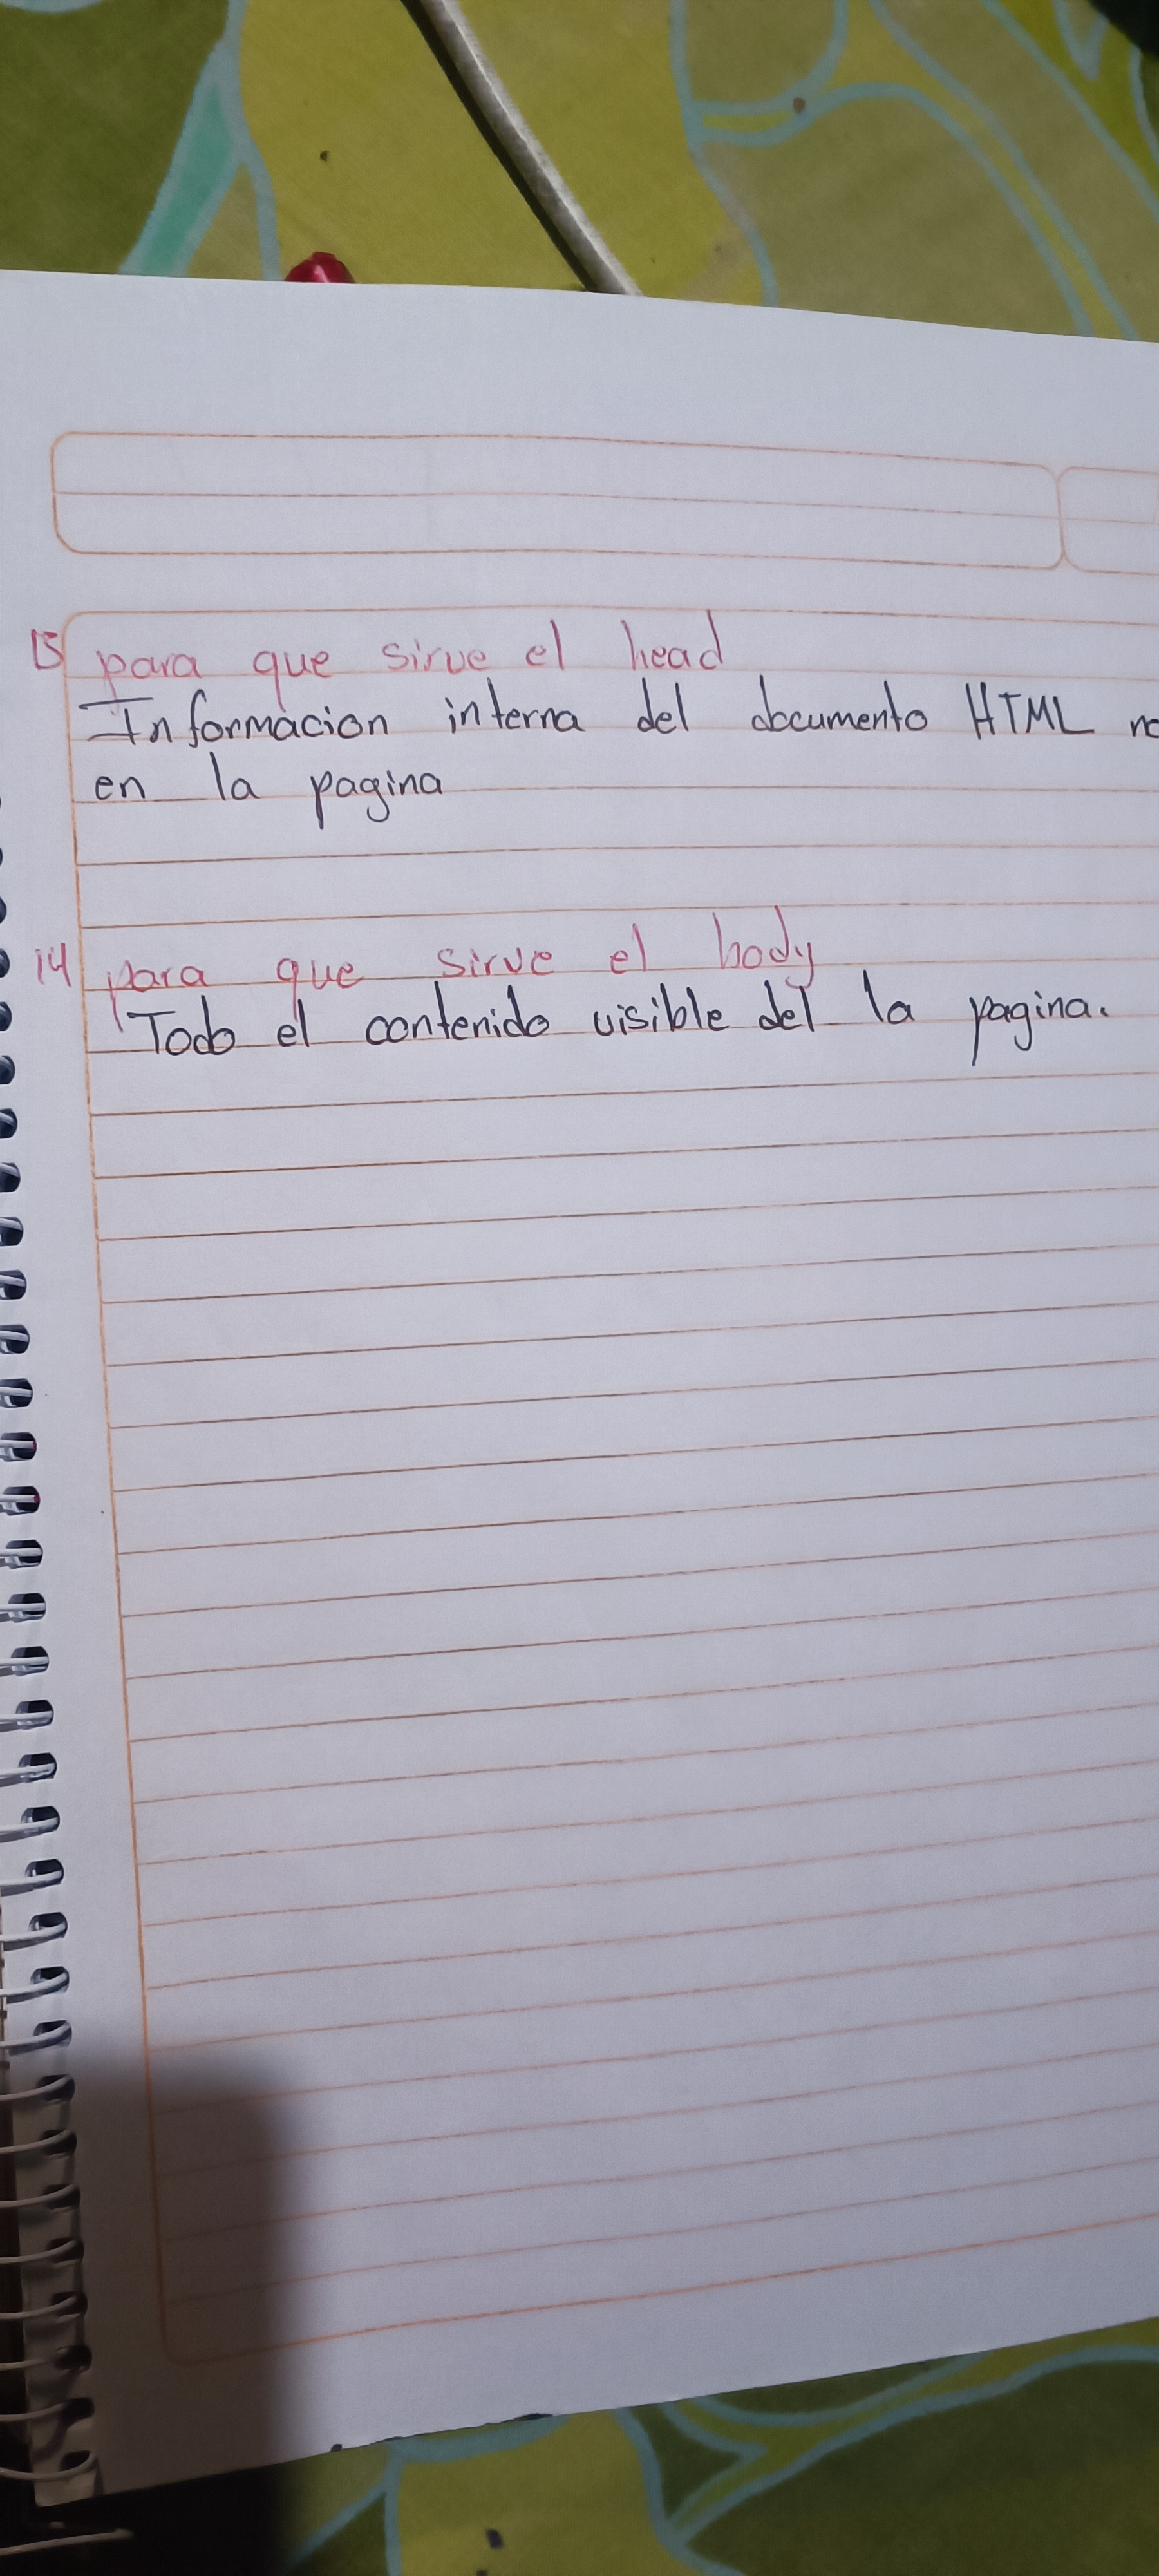 13 para que sirve el head
Informacion interna del documento HTML
en la pagina
14 para que sirve el body
Todo el contenido visible del la pagina.